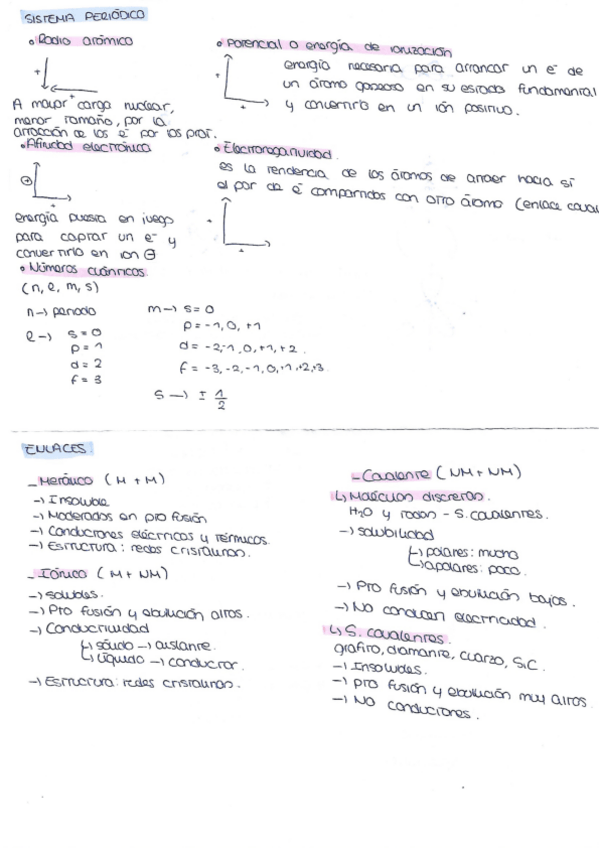 SISTEMA PERIÓDICO
• Radio atómico
+
+
A mayor carga nuclear,
menor tamaño, por la
atracción de los e⁻ por los prot.
• Potencial o energía de ionización
+
+
energía necesaria para arrancar un e⁻ de
un átomo gaseoso en su estado fundamental
y convertirlo en un ión positivo.
• Afinidad electrónica
energía puesta en juego
para captar un e⁻ y
convertirlo en ion ⊖
• Electronegatividad.
es la tendencia de los átomos de atraer hacia sí
el par de e⁻ compartidos con otro átomo (enlace coval
+
+
• Números cuánticos.
(n, l, m, s)
n → periodo
l → s = 0
p = 1
d = 2
f = 3
m → s = 0
p = -1, 0, +1
d = -2, -1, 0, +1, +2.
f = -3, -2, -1, 0, +1, +2, +3
s → ± 1/2
ENLACES.
- Metálico (M + M)
→ Insoluble
→ Moderados en pto fusión
→ Conductores eléctricos y térmicos.
→ Estructura: redes cristalinas.
- Iónico (M + NM)
→ solubles.
→ Pto fusión y ebullición altos.
→ Conductividad
↳ sólido → aislante.
↳ líquido → conductor.
→ Estructura: redes cristalinas.
- Covalente (NM + NM)
↳ Moléculas discretas.
H₂O y todos - S. covalentes.
→ solubilidad
↳ polares: mucho
↳ apolares: poco.
→ Pto fusión y ebullición bajos.
→ No conducen electricidad.
↳ S. covalentes.
grafito, diamante, cuarzo, SiC.
→ Insolubles.
→ pto fusión y ebullición muy altos
→ No conductores.